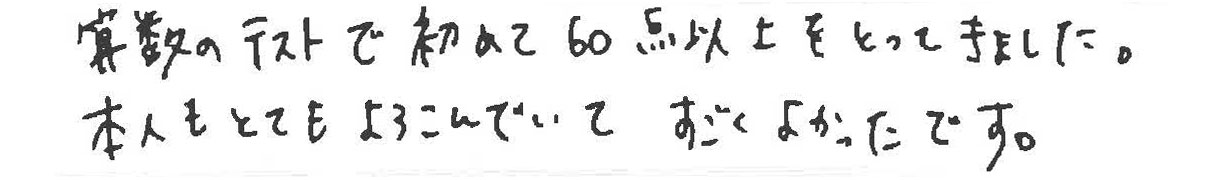 算数のテストで初めて60点以上をとってきました。
本人もとてもよろこんでいて すごくよかったです。